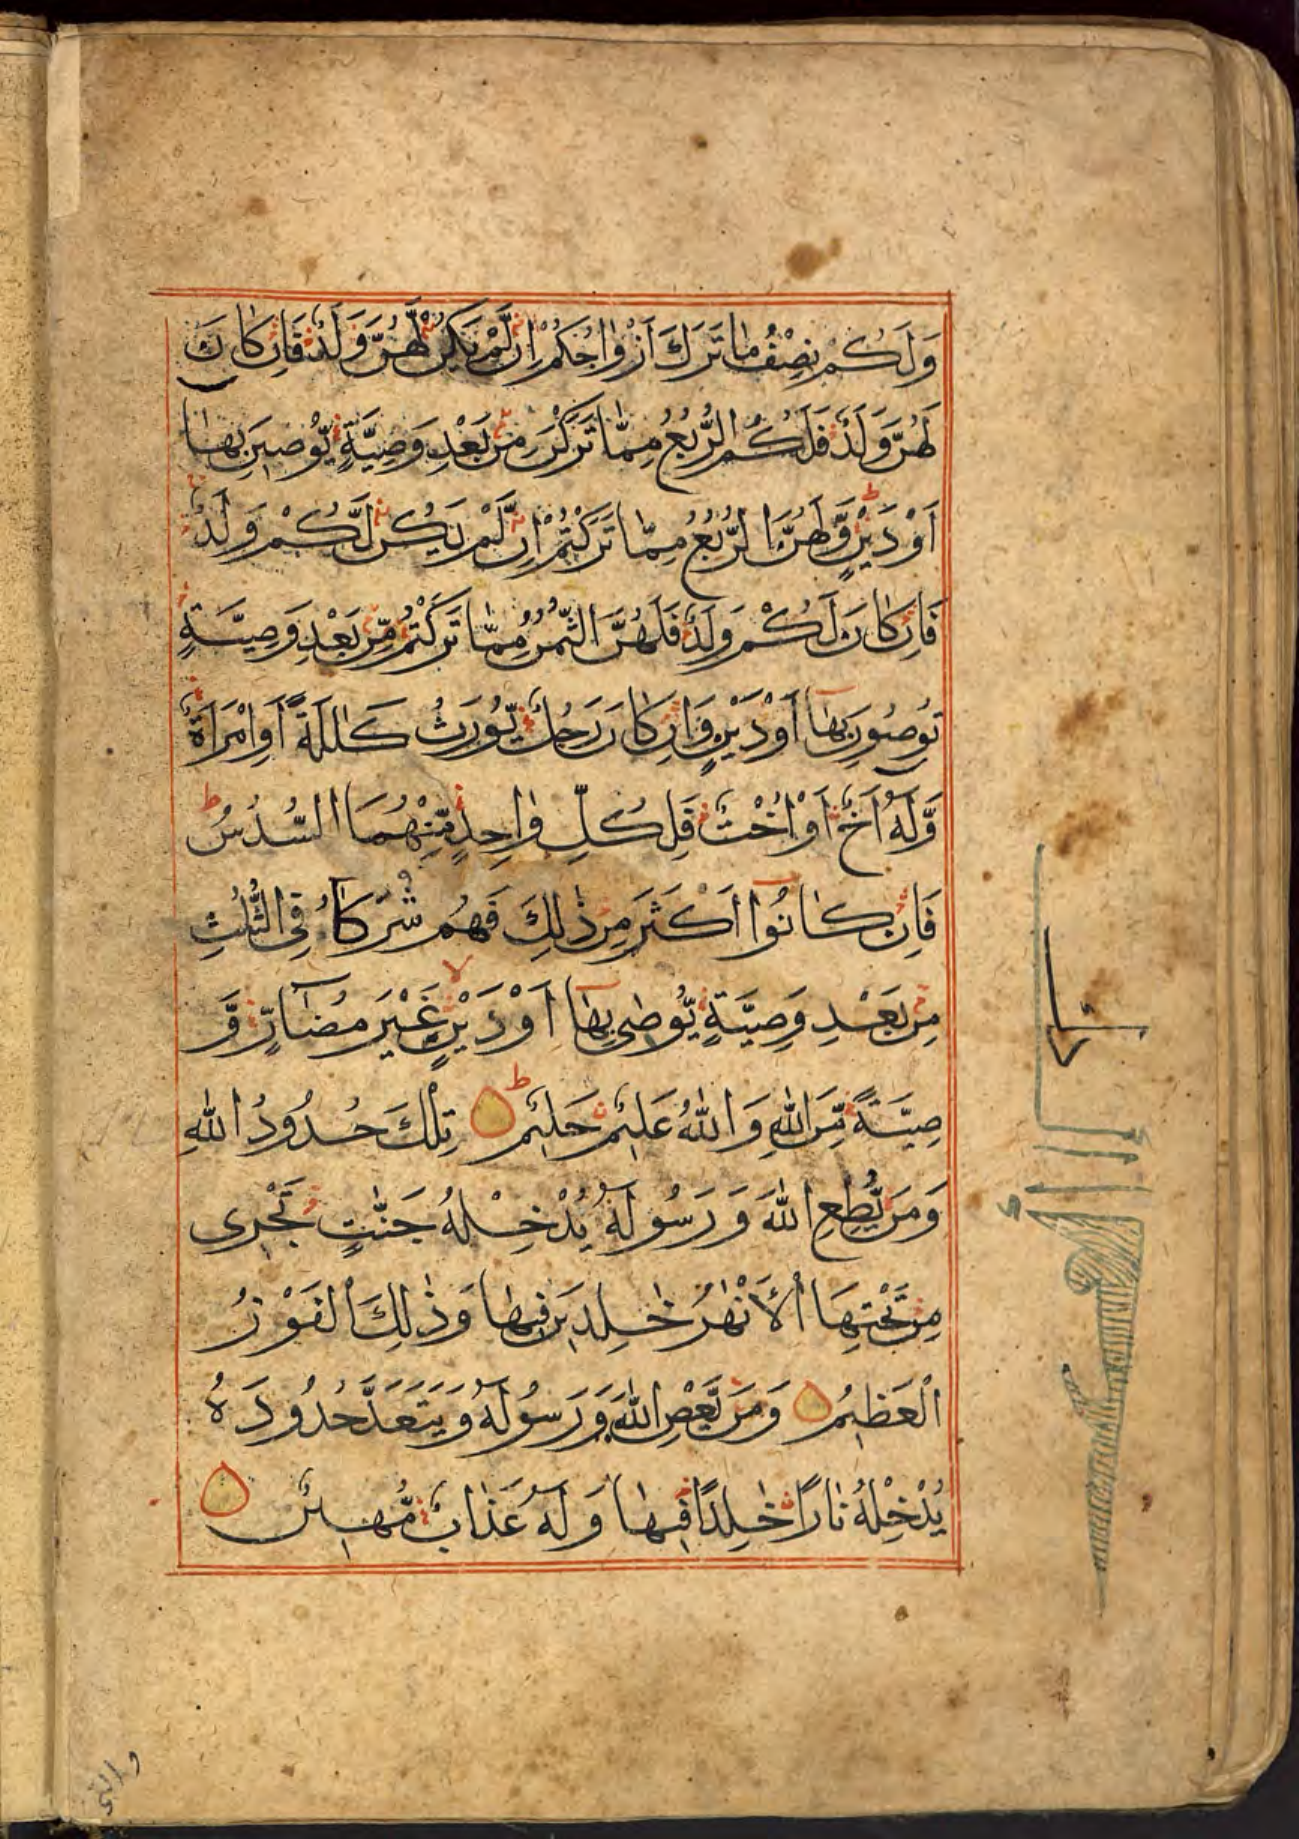 وَلَكُمْ نِصْفُ مَا تَرَكَ اَزْوَاجُكُمْ اِنْ لَّمْ يَكُنْ لَّهُنَّ وَلَدٌ فَاِنْ كَانَ
لَهُنَّ وَلَدٌ فَلَكُمُ الرُّبُعُ مِمَّا تَرَكْنَ مِنْ بَعْدِ وَصِيَّةٍ يُّوْصِيْنَ بِهَا
اَوْ دَيْنٍ وَّلَهُنَّ الرُّبُعُ مِمَّا تَرَكْتُمْ اِنْ لَّمْ يَكُنْ لَّكُمْ وَلَدٌ
فَاِنْ كَانَ لَكُمْ وَلَدٌ فَلَهُنَّ الثُّمُنُ مِمَّا تَرَكْتُمْ مِّنْ بَعْدِ وَصِيَّةٍ
تُوْصُوْنَ بِهَا اَوْ دَيْنٍ وَاِنْ كَانَ رَجُلٌ يُّوْرَثُ كَلٰلَةً اَوِ امْرَاَةٌ
وَّلَهٗ اَخٌ اَوْ اُخْتٌ فَلِكُلِّ وَاحِدٍ مِّنْهُمَا السُّدُسُ ط
فَاِنْ كَانُوْا اَكْثَرَ مِنْ ذٰلِكَ فَهُمْ شُرَكَآءُ فِى الثُّلُثِ
مِنْ بَعْدِ وَصِيَّةٍ يُّوْصٰى بِهَا اَوْ دَيْنٍ غَيْرَ مُضَآرٍّ وَّ
صِيَّةً مِّنَ اللّٰهِ وَاللّٰهُ عَلِيْمٌ حَلِيْمٌ ط تِلْكَ حُدُوْدُ اللّٰهِ
وَمَنْ يُّطِعِ اللّٰهَ وَرَسُوْلَهٗ يُدْخِلْهُ جَنّٰتٍ تَجْرِى
مِنْ تَحْتِهَا الْاَنْهٰرُ خٰلِدِيْنَ فِيْهَا وَذٰلِكَ الْفَوْزُ
الْعَظِيْمُ وَمَنْ يَّعْصِ اللّٰهَ وَرَسُوْلَهٗ وَيَتَعَدَّ حُدُوْدَهٗ
يُدْخِلْهُ نَارًا خٰلِدًا فِيْهَا وَلَهٗ عَذَابٌ مُّهِيْنٌ
والتى